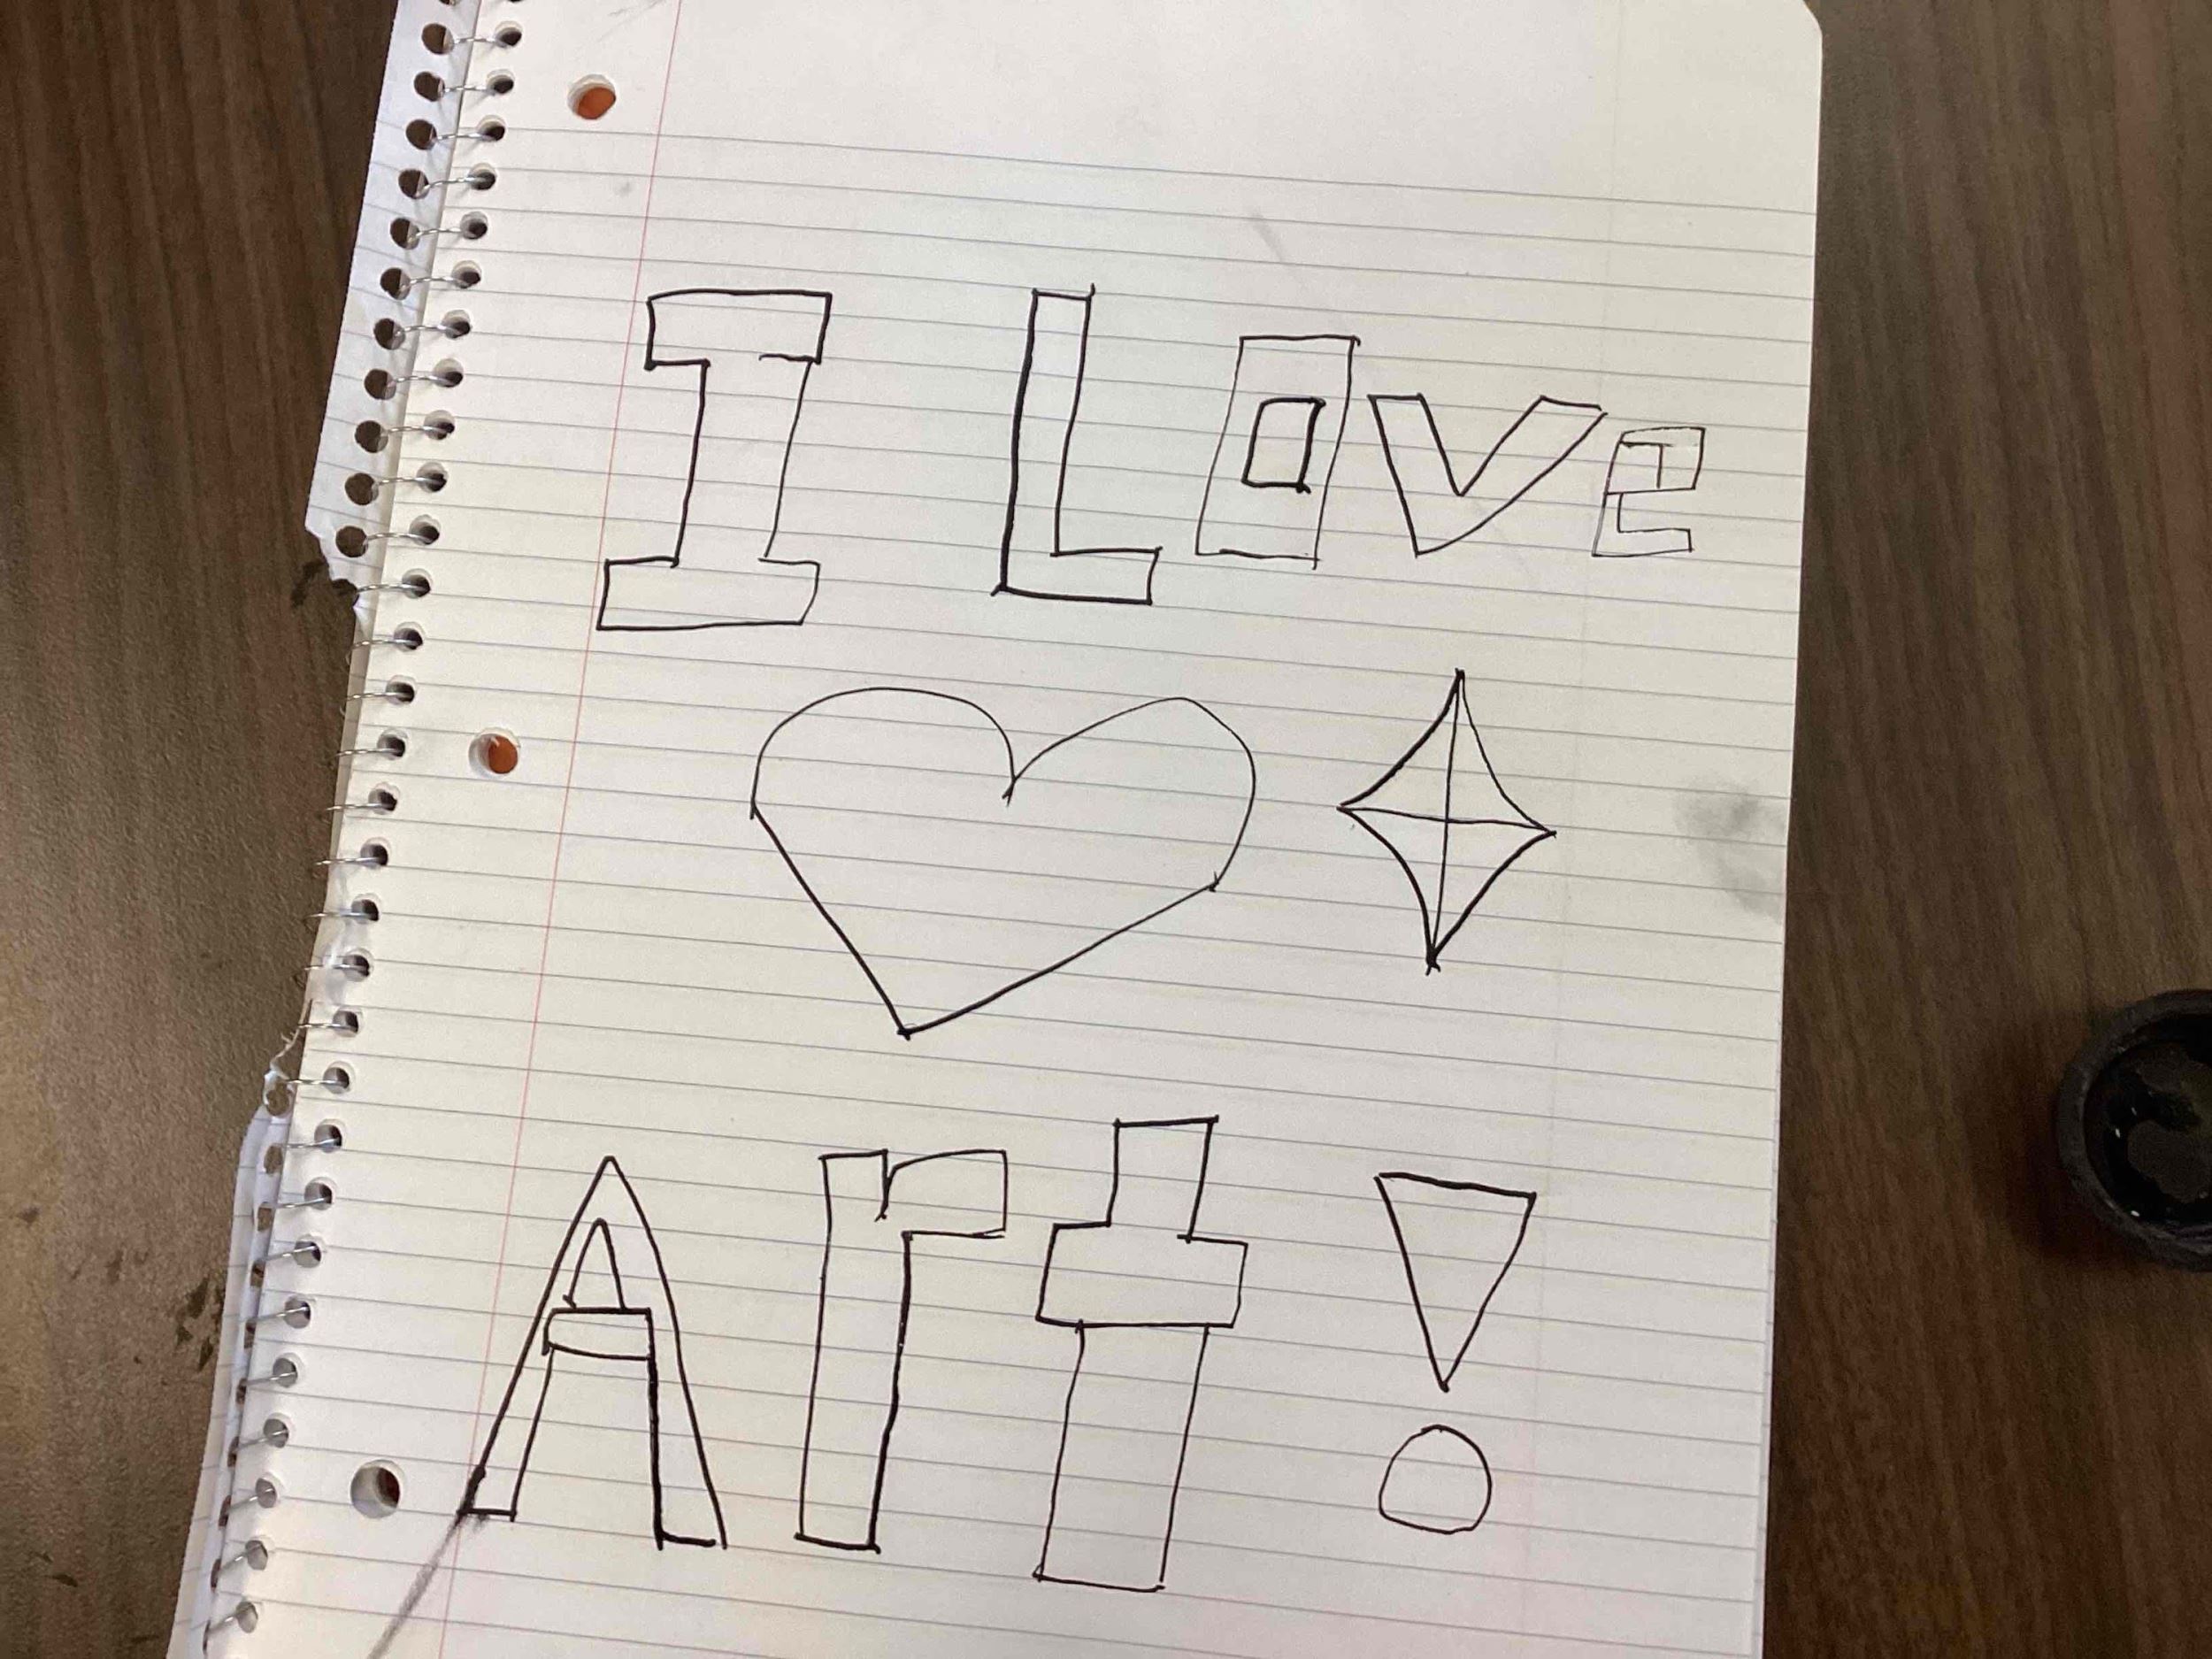 I Love
Art!